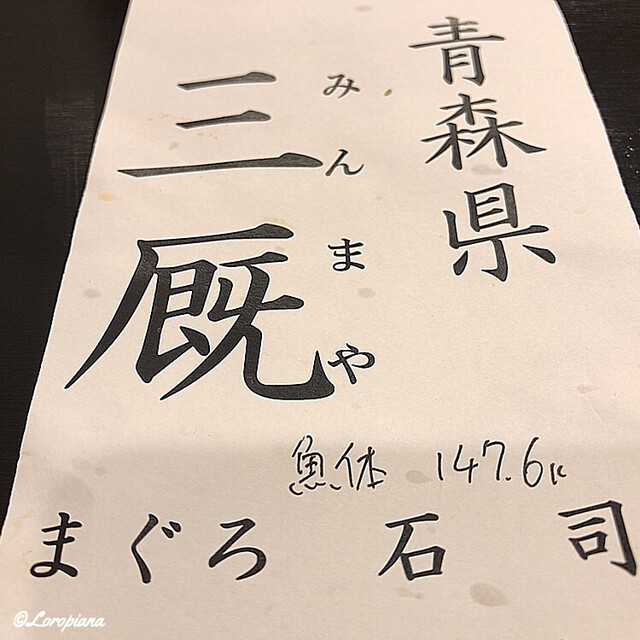 青森県
みんまや
三厩
魚体 147.6K
まぐろ 石司
©Loropiana